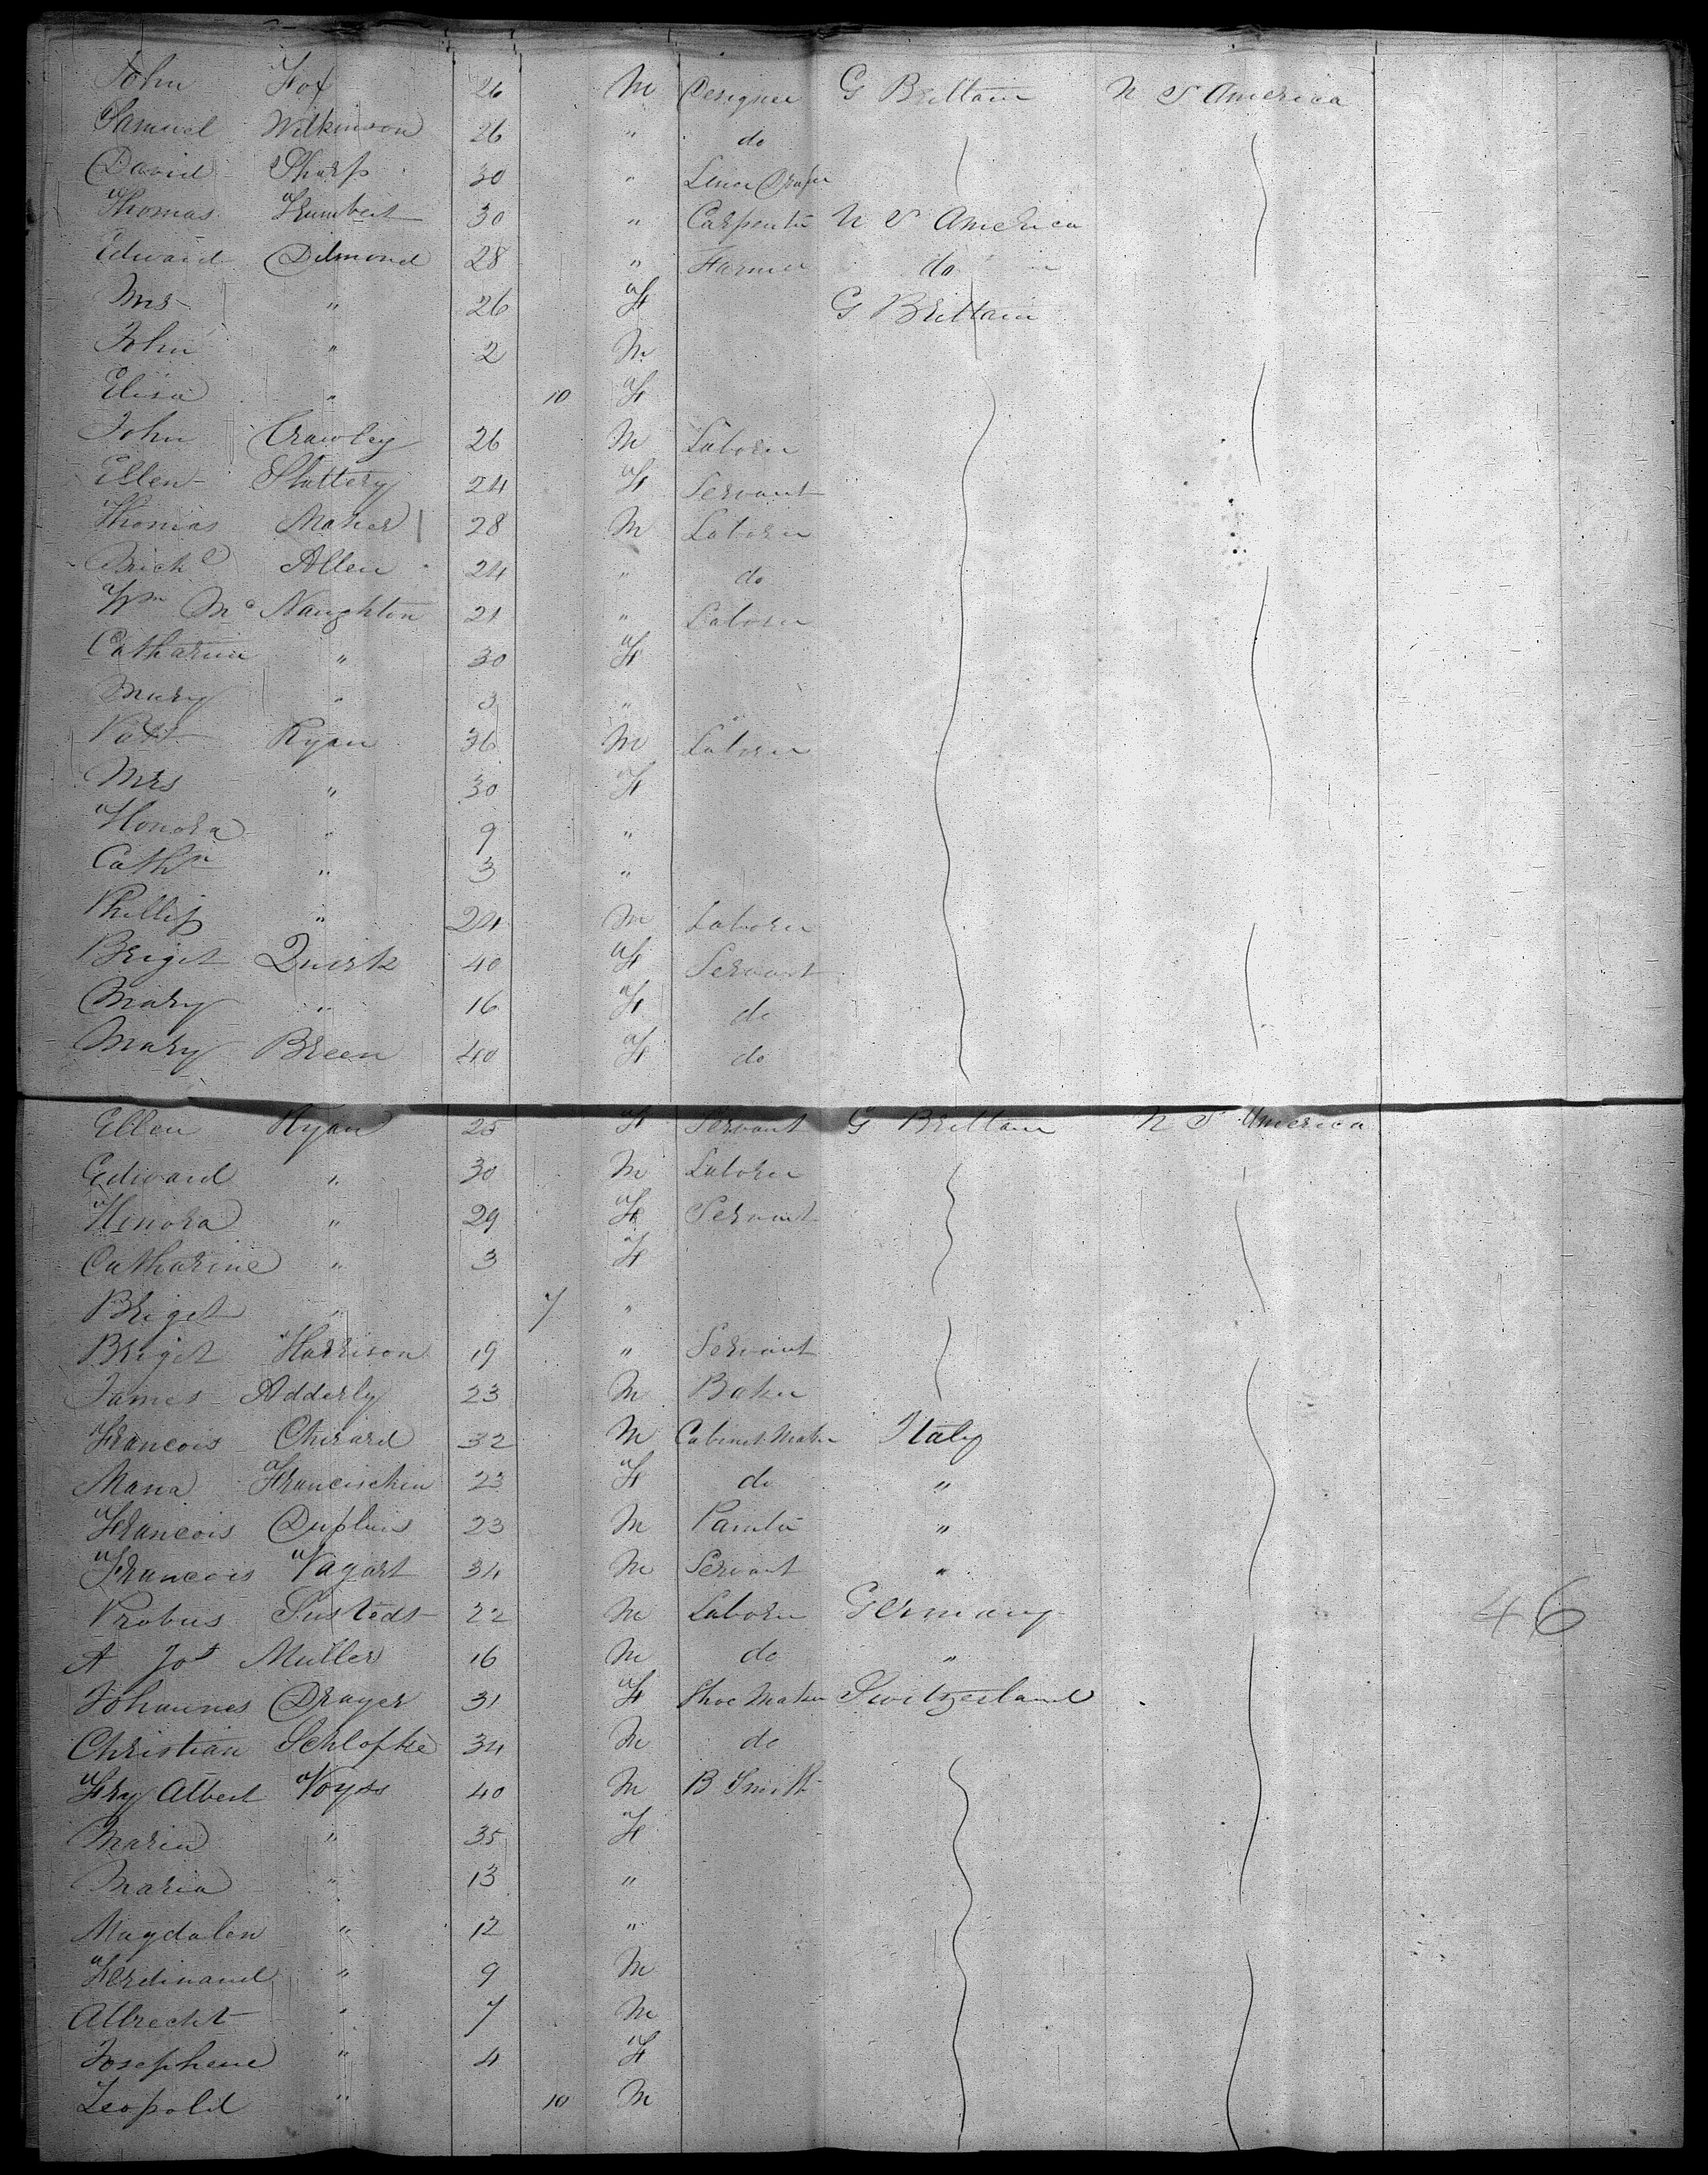 John Fox 26 M Designer G Brittain U S America
Samuel Wilkinson 26 " do
David Sharp 30 " Linen Draper
Thomas Humbert 30 " Carpenter U S America
Edward Dilmond 28 " Farmer do
Mrs " 26 F G Brittain
John " 2 M
Elisa " 10 F
John Crawley 26 M Laborer
Ellen Slattery 24 F Servant
Thomas Maher 28 M Laborer
Michl Allen 24 " do
Wm Mc Naughton 21 " Laborer
Catharine " 30 F
Mary " 3 "
Patt Ryan 36 M Laborer
Mrs " 30 F
Honora " 9 "
Cathn " 3 "
Phillip " 24 M Laborer
Briget Quirk 40 F Servant
Mary " 16 F do
Mary Breen 40 F do
Ellen Ryan 25 F Servant G Brittain U S America
Edward " 30 M Laborer
Honora " 29 F Servant
Catharine " 3 F
Briget " 7 "
Briget Harrison 19 " Servant
James Adderly 23 M Baker
Francois Chirard 32 M Cabinet Maker Italy
Maria Francischin 23 F do "
Francois Duplun 23 M Painter "
Francois Vagart 34 M Servant "
Probus Sustedt 22 M Laborer Germany
A Jos Muller 16 M do "
46
Johannes Drayer 31 F Shoe Maker Switzerland
Christian Schlofke 34 M do
Fry Albert Voyss 40 M B Smith
Maria " 35 F
Maria " 13 "
Magdalen " 12 "
Ferdinand " 9 M
Albrecht " 7 M
Josephene " 4 F
Leopold " 10 M